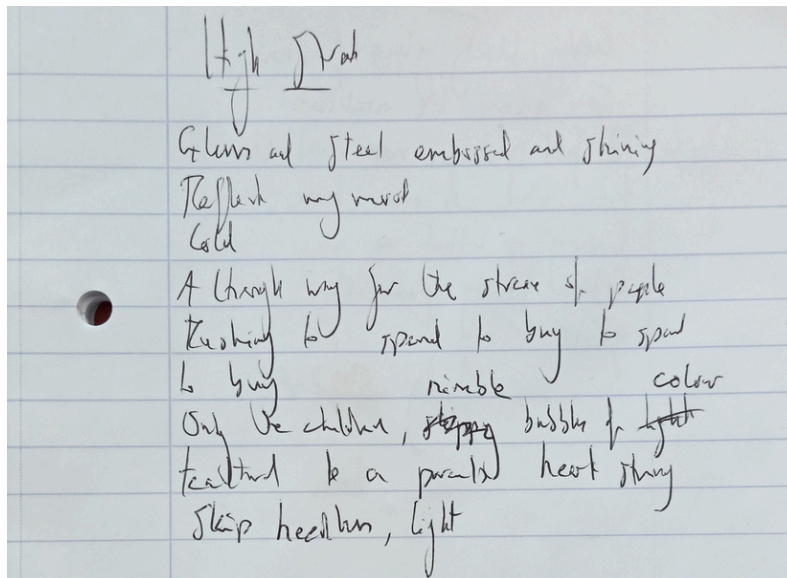 High Street
Glass and steel embossed and shining
Reflect my mood
Cold
A through way for the stream of people
Rushing to spend to buy to spend
to buy nimble colour
Only the children, skippy bubbles of light
Teathered to a parents heart string
Skip heedless, light